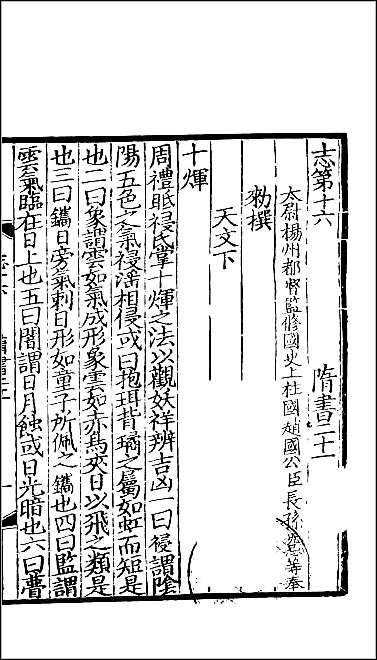 志第十六 隋書二十一
太尉楊州都督監脩國史上柱國趙國公臣長孫無忌等奉
勑撰
天文下
十煇
周禮眡祲氏掌十煇之法以觀妖祥辨吉凶一曰祲謂陰
陽五色之氣祲滛相侵或曰抱珥背璚之屬如虹而短是
也二曰象謂雲如氣成形象雲如赤烏夾日以飛之類是
也三曰鑴日旁氣刺日形如童子所佩之鑴也四曰監謂
雲氣臨在日上也五曰闇謂日月蝕或日光暗也六曰瞢